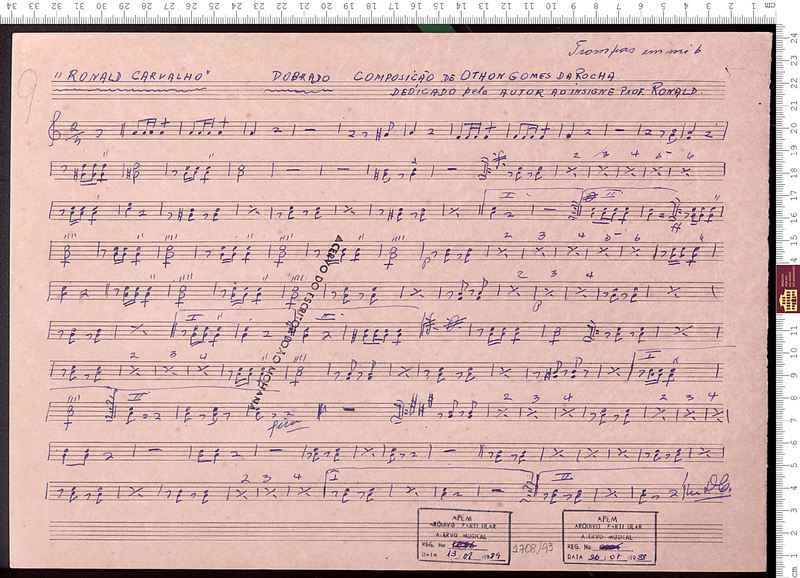 Trompas em mi b
"RONALD CARVALHO" DOBRADO COMPOSIÇÃO DE OTHON GOMES DA ROCHA
DEDICADO pelo AUTOR AO INSIGNE PROF. RONALD.
9
2 3 4 5 6
I II
2 3 4 5 6
2 3 4
I II
2 3 4
I
II
2 3 4
2 3 4
Fim
2 3 4
I II
D.C.
ACERVO DO ESCRITOR JOÃO MOHANA
APEM
ARQUIVO PARTICULAR
ACERVO MUSICAL
REG. No
DATA 13 01 1989
1708/93
APEM
ARQUIVO PARTICULAR
ACERVO MUSICAL
REG. No